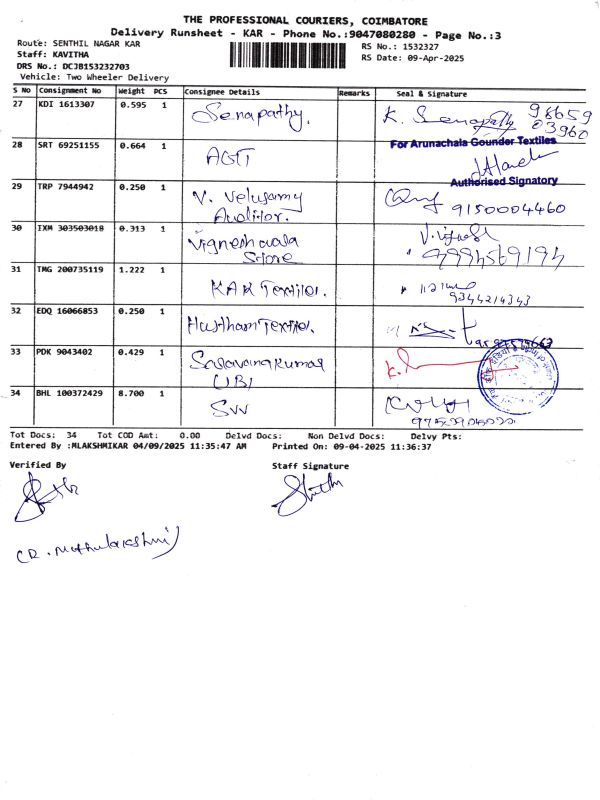 THE PROFESSIONAL COURIERS, COIMBATORE
Delivery Runsheet - KAR - Phone No.:9047080280 - Page No.:3
Route: SENTHIL NAGAR KAR
RS No.: 1532327
Staff: KAVITHA
RS Date: 09-Apr-2025
DRS No.: DCJB153232703
Vehicle: Two Wheeler Delivery
S No Consignment No Weight PCS Consignee Details Remarks Seal & Signature
27 KDI 1613307 0.595 1 Senapathy. K. Senapathy 98659
03960
28 SRT 69251155 0.664 1 AGT For Arunachala Gounder Textiles
Authorised Signatory
29 TRP 7944942 0.250 1 V. Velusamy
Auditor. 9150004460
30 IXM 303503018 0.313 1 Vignesh wala
Store
31 TMG 200735119 1.222 1 KAK Textiles. 9344214343
32 EDQ 16066853 0.250 1
33 PDK 9043402 0.429 1 Saravanakumar
UBI
34 BHL 100372429 8.700 1 SW
Tot Docs: 34 Tot COD Amt: 0.00 Delvd Docs: Non Delvd Docs: Delvy Pts:
Entered By :MLAKSHMIKAR 04/09/2025 11:35:47 AM Printed On: 09-04-2025 11:36:37
Verified By Staff Signature